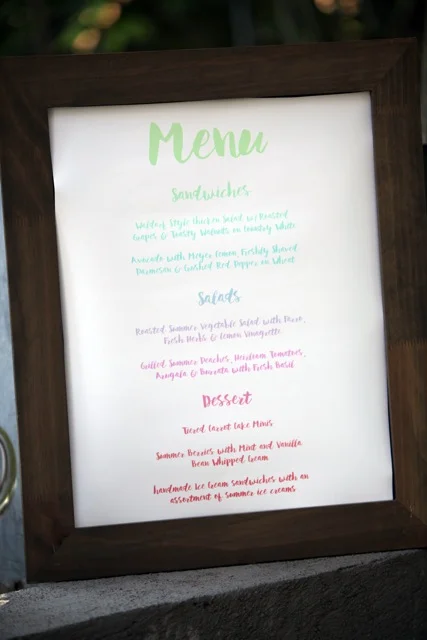 Menu
Sandwiches
Waldorf Style Chicken Salad w/ Roasted
Grapes & Toasty Walnuts on Country White
Avocado with Meyer Lemon, Freshly Shaved
Parmesan & Crushed Red Pepper on Wheat
Salads
Roasted Summer Vegetable Salad with Farro,
Fresh Herbs & Lemon Vinagrette
Grilled Summer Peaches, Heirloom Tomatoes,
Arugala & Burrata with Fresh Basil
Dessert
Tiered Carrot Cake Minis
Summer Berries with Mint and Vanilla
Bean Whipped Cream
handmade Ice Cream sandwiches with an
assortment of summer ice creams